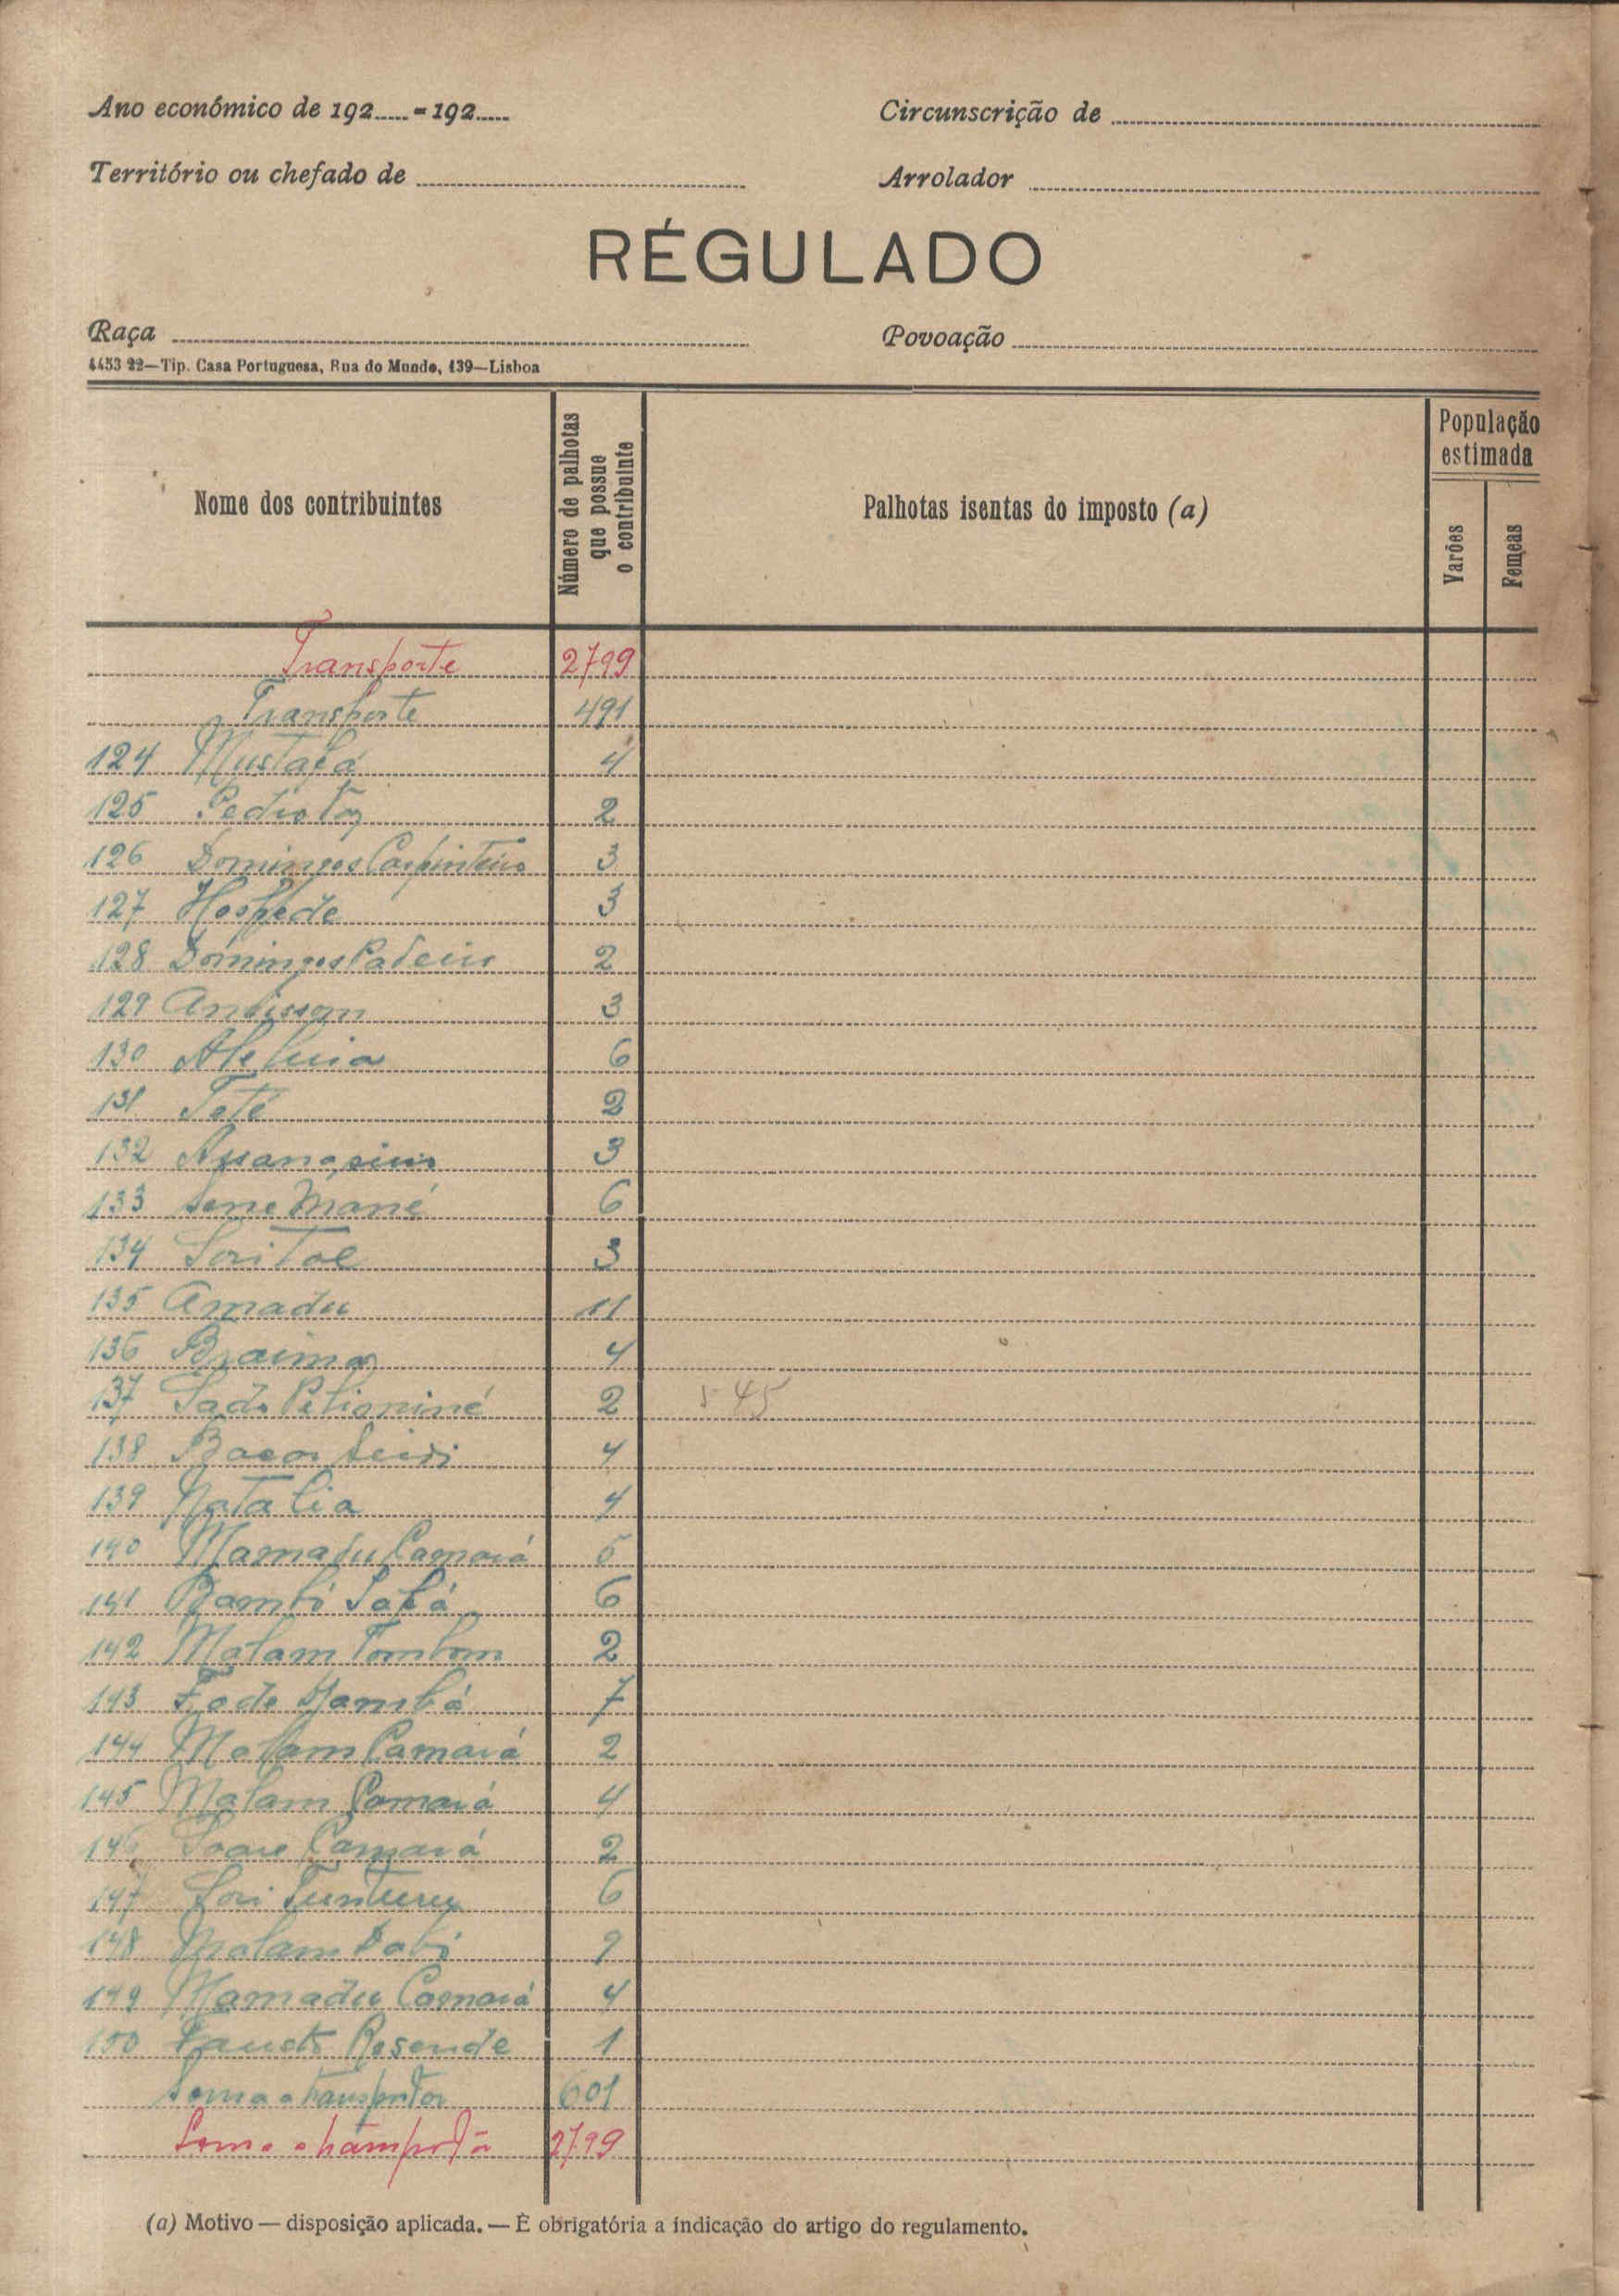 Ano económico de 192.....-192.....
Circunscrição de
Território ou chefado de
Arrolador
RÉGULADO
Raça
Povoação
4453 22—Tip. Casa Portuguesa, Rua do Mundo, 139—Lisboa
Nome dos contribuintes
Número de palhotas que possue o contribuinte
Palhotas isentas do imposto (a)
População estimada
Varões
Femeas
Transporte 2799
Transporte 491
124 Mustafá 4
125 Pedro 2
126 Domingos Carpinteiro 3
127 Hospede 3
128 Domingos Padeiro 2
129 3
130 Aleluia 6
131 Teté 2
132 3
133 Sene Mané 6
134 Sori 3
135 Amadu 11
136 Braima 4
137 2 45
138 Bacar Seidi 4
139 Natalia 4
140 Mamadu Camará 5
141 6
142 Malam Tombom 2
143 Fode Mambá 7
144 Malam Camará 2
145 Malam Camará 4
146 Camará 2
147 Sori Tunturu 6
148 Malam Dabó 2
149 Mamadu Camará 4
150 Fausto Resende 1
Soma a transportar 601
Soma a transportar 2799
(a) Motivo — disposição aplicada. — É obrigatória a indicação do artigo do regulamento.